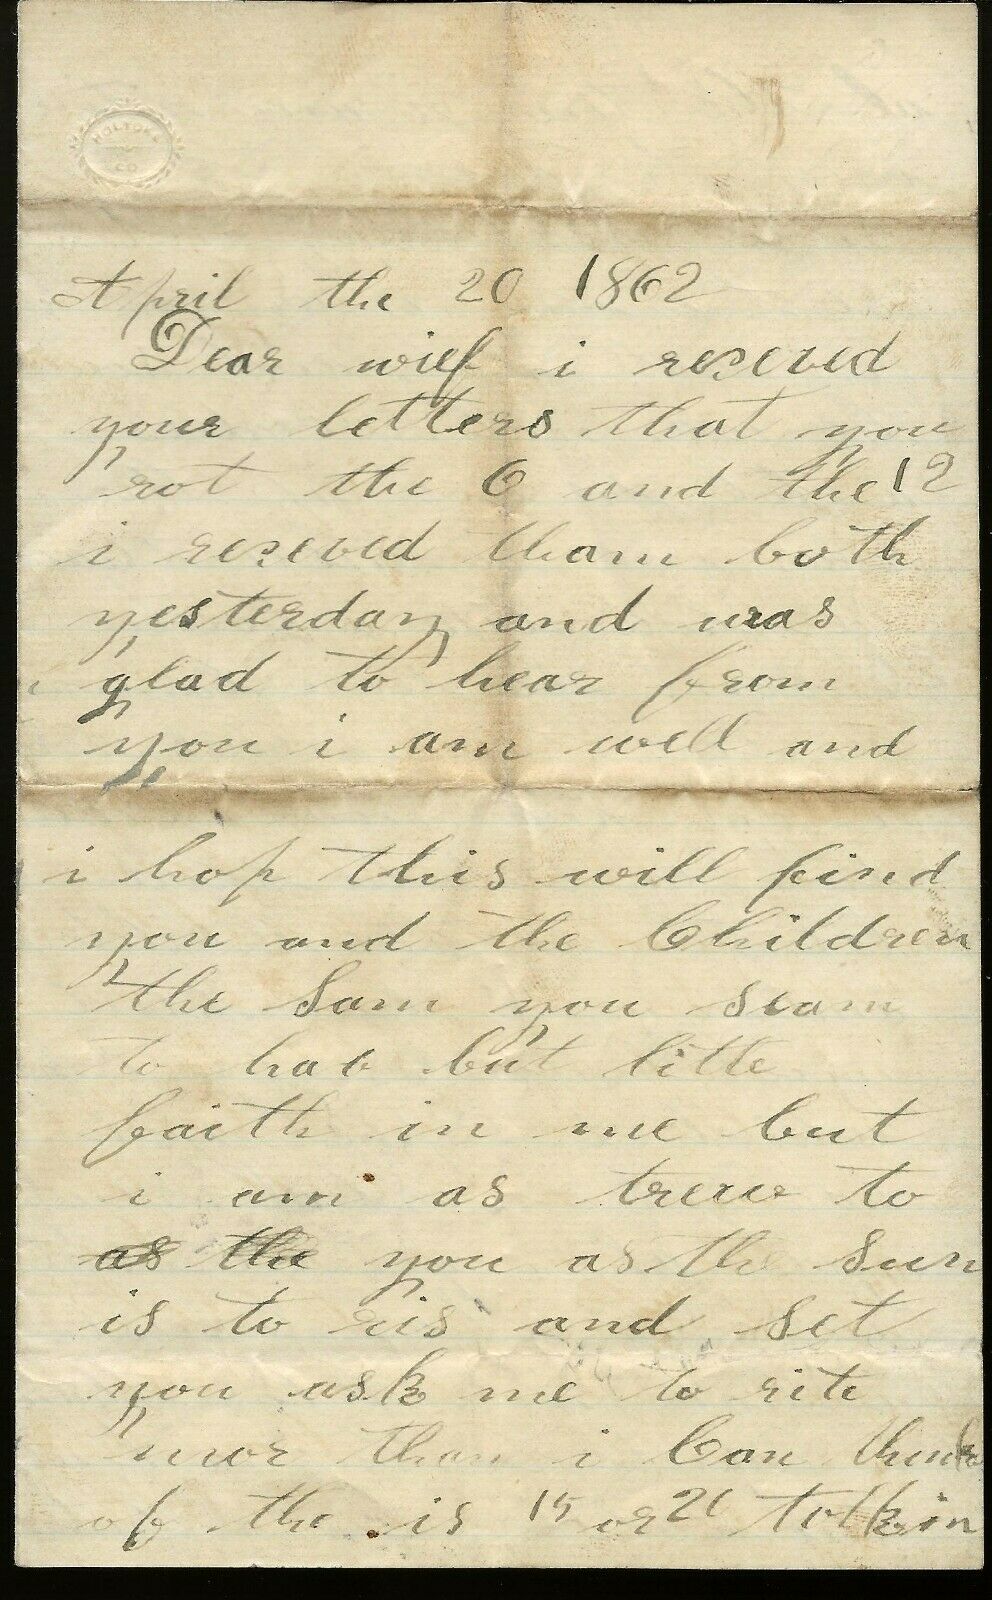 HOLYOKE
CO
April the 20 1862
Dear wief i reseved
your letters that you
rot the 6 and the 12
i reseved tham both
yesterday and was
glad to hear from
you i am well and
i hop this will find
you and the Children
the Sam you seam
to hav but litte
faith in me but
i am as trew to
as the you as the Sun
is to ris and set
you ask me to rite
mor than i Can think
of the is 15 or 21 tolkin